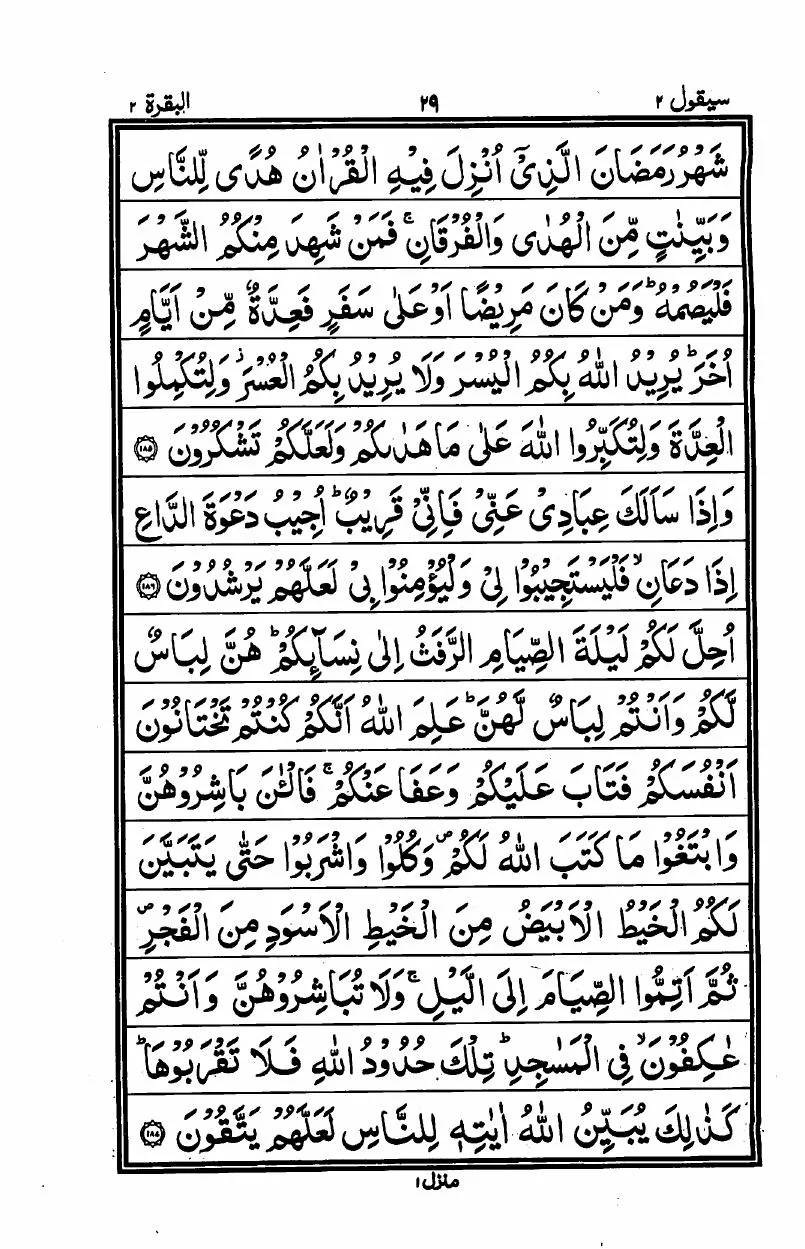 سيقول ٢ ٢٩ البقرة ٢
شَهْرُ رَمَضَانَ الَّذِىْٓ اُنْزِلَ فِيْهِ الْقُرْاٰنُ هُدًى لِّلنَّاسِ
وَبَيِّنٰتٍ مِّنَ الْهُدٰى وَالْفُرْقَانِ ۚ فَمَنْ شَهِدَ مِنْكُمُ الشَّهْرَ
فَلْيَصُمْهُ ؕ وَمَنْ كَانَ مَرِيْضًا اَوْ عَلٰى سَفَرٍ فَعِدَّةٌ مِّنْ اَيَّامٍ
اُخَرَ ؕ يُرِيْدُ اللّٰهُ بِكُمُ الْيُسْرَ وَلَا يُرِيْدُ بِكُمُ الْعُسْرَ ز وَلِتُكْمِلُوا
الْعِدَّةَ وَلِتُكَبِّرُوا اللّٰهَ عَلٰى مَا هَدٰىكُمْ وَلَعَلَّكُمْ تَشْكُرُوْنَ ۝۱۸۵
وَاِذَا سَاَلَكَ عِبَادِىْ عَنِّىْ فَاِنِّىْ قَرِيْبٌ ؕ اُجِيْبُ دَعْوَةَ الدَّاعِ
اِذَا دَعَانِ ۙ فَلْيَسْتَجِيْبُوْا لِىْ وَلْيُؤْمِنُوْا بِىْ لَعَلَّهُمْ يَرْشُدُوْنَ ۝۱۸۶
اُحِلَّ لَكُمْ لَيْلَةَ الصِّيَامِ الرَّفَثُ اِلٰى نِسَآئِكُمْ ؕ هُنَّ لِبَاسٌ
لَّكُمْ وَاَنْتُمْ لِبَاسٌ لَّهُنَّ ؕ عَلِمَ اللّٰهُ اَنَّكُمْ كُنْتُمْ تَخْتَانُوْنَ
اَنْفُسَكُمْ فَتَابَ عَلَيْكُمْ وَعَفَا عَنْكُمْ ۚ فَالْـٰٔنَ بَاشِرُوْهُنَّ
وَابْتَغُوْا مَا كَتَبَ اللّٰهُ لَكُمْ ۪ وَكُلُوْا وَاشْرَبُوْا حَتّٰى يَتَبَيَّنَ
لَكُمُ الْخَيْطُ الْاَبْيَضُ مِنَ الْخَيْطِ الْاَسْوَدِ مِنَ الْفَجْرِ ۪
ثُمَّ اَتِمُّوا الصِّيَامَ اِلَى الَّيْلِ ۚ وَلَا تُبَاشِرُوْهُنَّ وَاَنْتُمْ
عٰكِفُوْنَ ۙ فِى الْمَسٰجِدِ ؕ تِلْكَ حُدُوْدُ اللّٰهِ فَلَا تَقْرَبُوْهَا ؕ
كَذٰلِكَ يُبَيِّنُ اللّٰهُ اٰيٰتِهٖ لِلنَّاسِ لَعَلَّهُمْ يَتَّقُوْنَ ۝۱۸۷
منزل ١